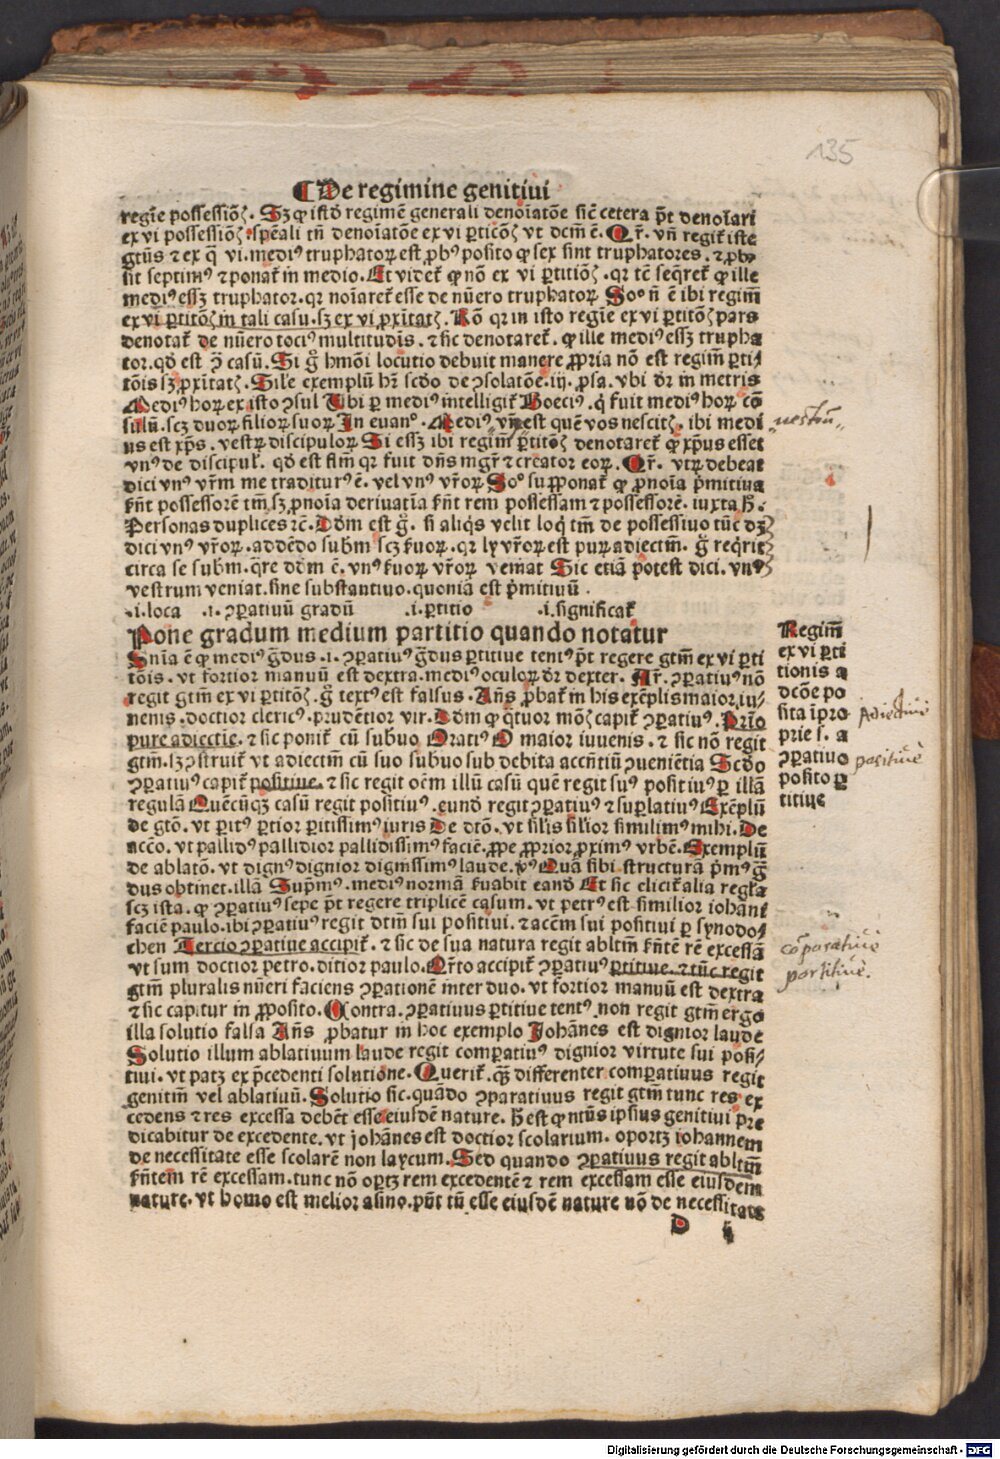 135
⁋ De regimine genitiui
regīe possessiōꝫ. Sꝫ ꝙ istd̄ regimē generali denoīatōe sic̄ cetera p̄t denoīari
ex vi possessiōꝫ. spēali tn̄ denoīatōe ex vi ꝑticōꝫ vt dcm̄ ē. Qr̄. vn̄ regit᷑ iste
gtūs ⁊ ex q̄ vi. mediꝰ truphatoꝝ est ꝓbꝰ posito ꝙ sex sint truphatores. ⁊ ꝓbꝰ
sit septimꝰ ⁊ ponat᷑ in medio. Et videt᷑ ꝙ nō ex vi ꝑtitiōꝫ. qr tē seq̄ret᷑ ꝙ ille
mediꝰ essꝫ truphator. qr noīaret᷑ esse de nūero truphatoꝝ Soꝰ n̄ ē ibi regim̄
ex vi ꝑtitōꝫ in tali casu. sꝫ ex vi ꝓxītatꝫ. Rō qr in isto regīe ex vi ꝑtitōꝫ pars
denotat᷑ de nūero tociꝰ multitudīs. ⁊ sic denotaret᷑. ꝙ ille mediꝰ essꝫ trupha
tor. qd̓ est ꝯ̄ casū. Si g̊ hmōi locutio debuit manere ꝓpria nō est regim̄ ꝑti⸗
tōis sꝫ ꝓxītatꝫ. Sile exemplū hr̄ scd̓o de ꝯsolatōe. iij. ꝓsa. vbi dr̄ in metris
Mediꝰ hoꝝ ex isto ꝯsul Ubi ꝑ mediꝰ intelligit᷑ Boeciꝰ. q̇ fuit mediꝰ hoꝝ cō
sulū. scꝫ duoꝝ filioꝝ suoꝝ In euanᵒ. Mediꝰ vn̄ est quē vos nescitꝫ. ibi medi
us est xp̄s. vestꝝ discipuloꝝ Si essꝫ ibi regim̄ ꝑtitōꝫ denotaret᷑ ꝙ xp̄us esset
vnꝰ de discipul᷑. qd̓ est flm̄ qr fuit dn̄s mgr̄ ⁊ creator eoꝝ. Qr̄. vtꝝ debeat
dici vnꝰ vr̄m me traditurꝰ ē. vel vnꝰ vr̄oꝝ. Soᵒ supponat᷑ ꝙ ꝓnoīa pͥmitiua
sn̄t possessorē tm̄ sꝫ ꝓnoīa deriuatīa sn̄t rem possessam ⁊ possessorē. iuxta h̄.
Personas duplices ⁊c̄. Dd̓m est g̊. si aliqͥs velit loqͥ tm̄ de possessiuo tūc dꝫ
dici vnꝰ vr̄oꝝ. addēdo subm̄ scꝫ suoꝝ. qr ly vr̄oꝝ est puꝝ adiectm̄. g̊ reqͥrit
circa se subm̄. qͣre dd̓m ē. vnꝰ suoꝝ vr̄oꝝ veniat Sic etiā potest dici. vnꝰ
vestrum veniat. sine substantiuo. quoniā est pͥmitiuū.
.i. loca .i. ꝯꝑatiuū gradū .i. ꝑtitio .i. significat᷑
Pone gradum medium partitio quando notatur
Snīa ē ꝙ mediꝰ g̃dus .i. ꝯꝑatiuꝰ g̃dus ꝑtitiue tentꝰ p̄t regere gtm̄ ex vi ꝑti
tōis. vt fortior manuū est dextra. mediꝰ oculoꝝ dr̄ dexter. Ar̄. ꝯꝑatiuꝰ nō
regit gtm̄ ex vi ꝑtitōꝫ. g̊ textꝰ est falsus. Añs ꝓbat᷑ in his exēplis maior iu⸗
uenis. doctior clericꝰ. prudētior vir. Dd̓m ꝙ qͣtuor moꝫ capit᷑ ꝯꝑatiuꝰ. Prīo
pure adiectie. ⁊ sic ponit᷑ cū subuo Oratiꝰ O maior iuuenis. ⁊ sic nō regit
gtm̄. sꝫ ꝯstruit᷑ vt adiectm̄ cū suo subuo sub debita accn̄tiū ꝯueniētia Scd̓o
ꝯꝑatiuꝰ capit᷑ positiue. ⁊ sic regit oēm illū casū quē regit suꝰ positiuꝰ ꝑ illā
regulā Quēcūqꝫ casū regit positiuꝰ. eund̓ regit ꝯꝑatiuꝰ ⁊ suꝑlatiuꝰ Exēplū
de gtō. vt ꝑitꝰ ꝑtior ꝑitissimꝰ iuris De dtō. vt sil̓is sil̓ior similimꝰ mihi. De
accō. vt pallidꝰ pallidior pallidissimꝰ faciē. ꝓpe ꝓprior ꝓximꝰ vrbē. Exemplū
de ablatō. vt dignꝰ dignior dignissimꝰ laude. vꝰ Quā sibi structurā pͥmꝰ g̃
dus obtinet. illā Supͥmꝰ. mediꝰ normā suabit eand̓ Et sic elicit᷑ alia regl̓a
scꝫ ista. ꝙ ꝯꝑatiuꝰ sepe p̄t regere triplicē casum. vt petrꝰ est similior iohāni
faciē paulo. ibi ꝯꝑatiuꝰ regit dtm̄ sui positiui. ⁊ acēm sui positiui ꝑ synodo⸗
chen Tercio ꝯꝑatiue accipit᷑. ⁊ sic de sua natura regit abltm̄ sn̄tē rē excessā
vt sum doctior petro. ditior paulo. Qrto accipit᷑ ꝯꝑatiuꝰ ꝑtitiue. ⁊ tūc regit
gtm̄ pluralis nūeri faciens ꝯꝑationē inter duo. vt fortior manuū est dextra
⁊ sic capitur in ꝓposito. Contra. ꝯꝑatiuus ꝑtitiue tentꝰ non regit gtm̄ ergo
illa solutio falsa Añs ꝓbatur in hoc exemplo Johānes est dignior laude
Solutio illum ablatiuum laude regit comꝑatiuꝰ dignior virtute sui posi⸗
tiui. vt patꝫ ex p̄cedenti solutione. Querit᷑. qͣꝫ differenter comꝑatiuus regit
genitim̄ vel ablatiuū. Solutio sic. quādo ꝯparatiuus regit gtm̄ tunc res ex
cedens ⁊ res excessa debēt esse eiusdē nature. h̄ est ꝙ ntūs ipsius genitiui pre
dicabitur de excedente. vt johānes est doctior scolarium. oportꝫ iohannem
de necessitate esse scolarē non laycum. Sed quando ꝯꝑatiuus regit abltm̄
sn̄tem rē excessam. tunc nō oportꝫ rem excedentē ⁊ rem excessam esse eiusdem
nature. vt homo est melior asino. pn̄t tn̄ esse eiusdē nature nō de necessitate
D ij
Regim̄
ex vi ꝑti
tionis a
dcōe po
sita īpro
prie s. a
ꝯꝑatiuo
posito ꝑ
titiue
vestrū
Adiectiuē
positiuē
cōparatiuē
partitiuē.
Digitalisierung gefördert durch die Deutsche Forschungsgemeinschaft - DFG